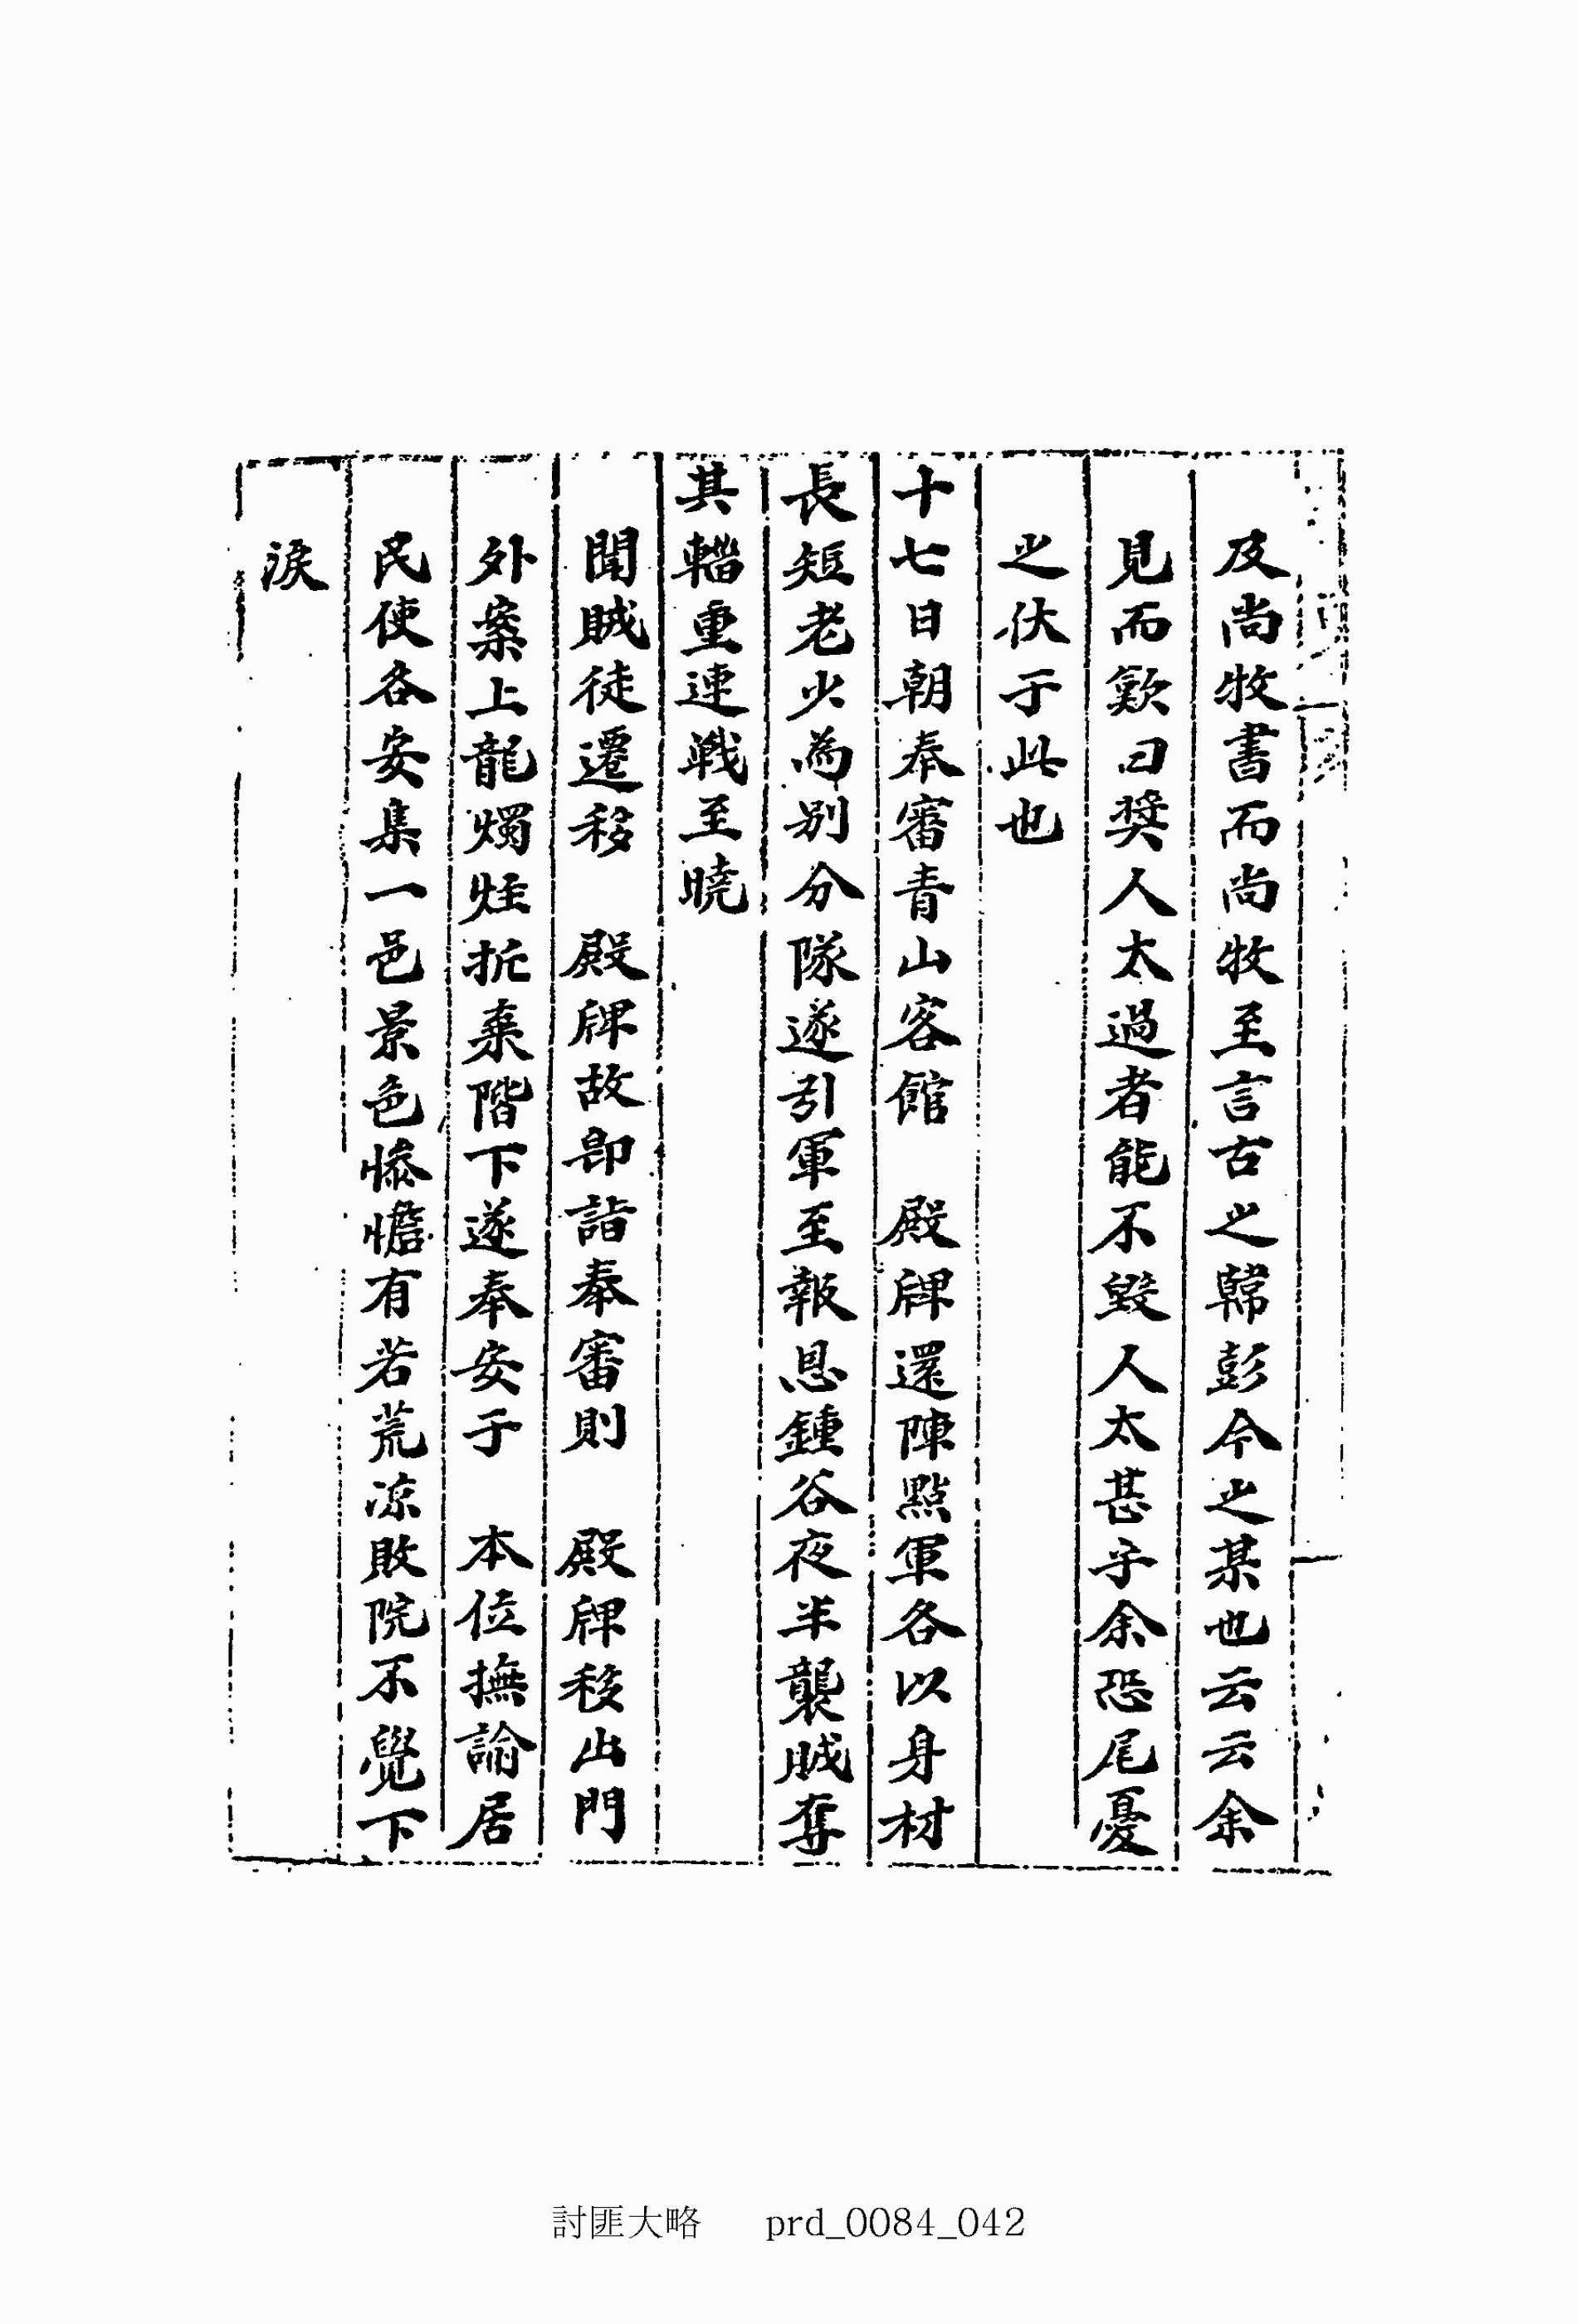 及尙牧書而尙牧至言古之韓彭今之某也云云余
見而歎曰奬人太過者能不毀人太甚乎余恐尾憂
之伏于此也
十七日朝奉審靑山客館 殿牌還陣點軍各以身材
長短老少爲別分隊遂引軍至報恩鍾谷夜半襲賊奪
其輜重連戰至曉
聞賊徒遷移 殿牌故卽詣奉審則 殿牌移出門
外案上龍燭炷折棄階下遂奉安于 本位撫諭居
民使各安集一邑景色慘憺有若荒凉敗院不覺下
淚
討匪大略 prd_0084_042